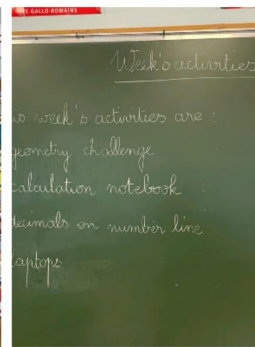 ES GALLO-ROMAINS
Week's activities
is week's activities are:
geometry challenge
calculation notebook
decimals on number line
laptops